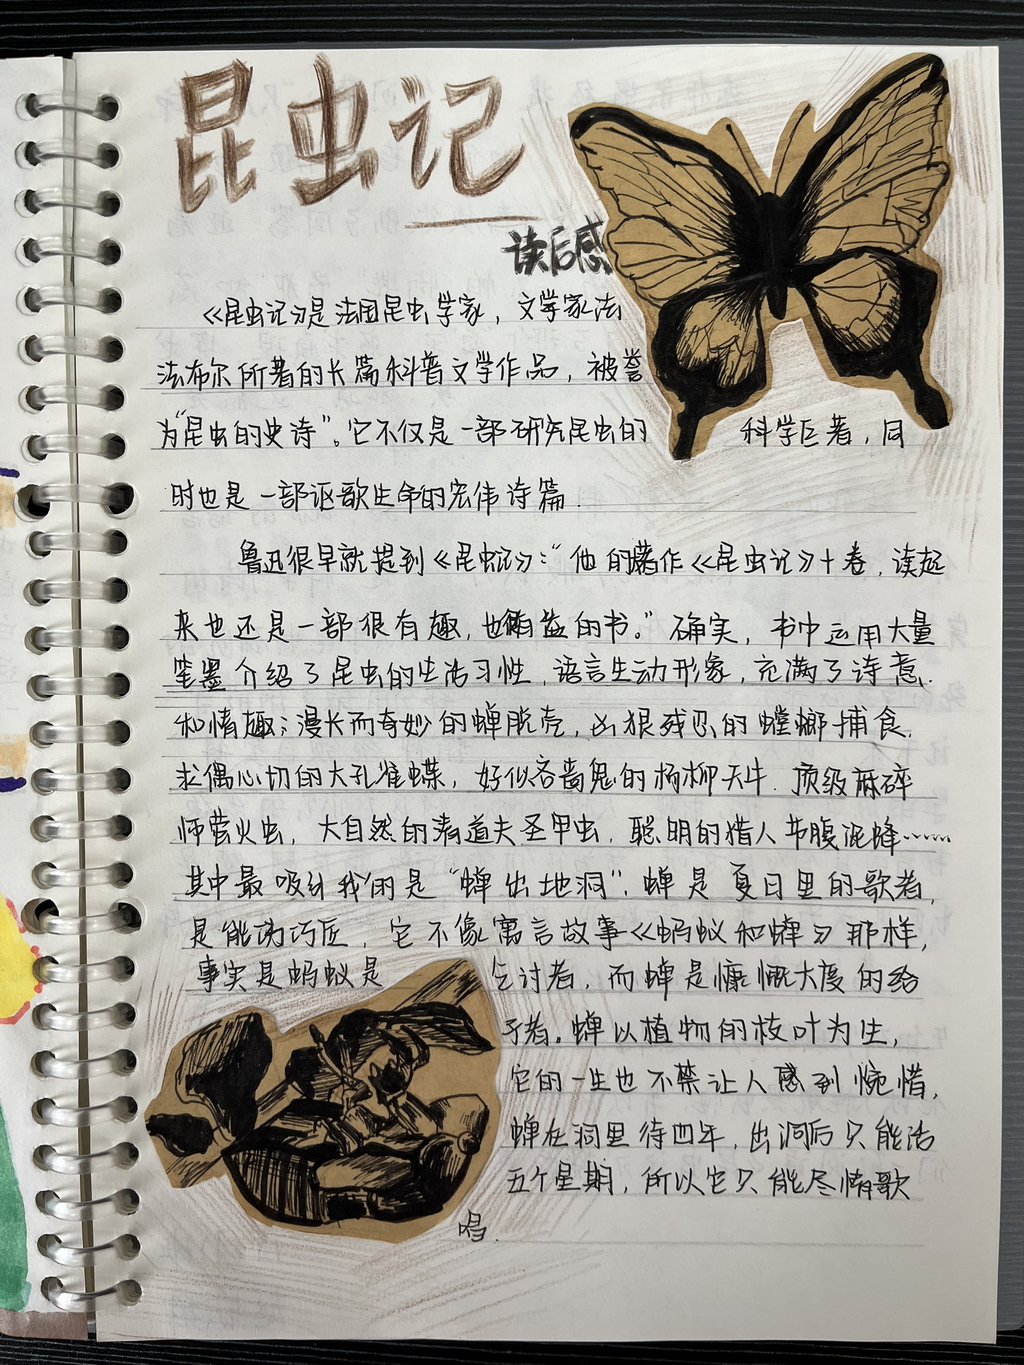 昆虫记
读后感
《昆虫记》是法国昆虫学家，文学家法
法布尔所著的长篇科普文学作品，被誉
为“昆虫的史诗”。它不仅是一部研究昆虫的 科学巨著，同
时也是一部讴歌生命的宏伟诗篇.
鲁迅很早就提到《昆虫记》：“他的著作《昆虫记》十卷，读起
来也还是一部很有趣，也有益的书。”确实，书中运用大量
笔墨介绍了昆虫的生活习性，语言生动形象，充满了诗意.
和情趣；漫长而奇妙的蝉脱壳，凶狠残忍的螳螂捕食，
求偶心切的大孔雀蝶，好似吝啬鬼的杨柳天牛. 顶级麻碎
师萤火虫，大自然的清道夫圣甲虫，聪明的猎人节腹泥蜂……
其中最吸引我的是“蝉出地洞”，蝉是夏日里的歌者，
是能巧匠，它不像寓言故事《蚂蚁和蝉》那样，
事实是蚂蚁是 乞讨者，而蝉是慷慨大度的给
予者。蝉以植物的枝叶为生，
它的一生也不禁让人感到惋惜，
蝉在洞里待四年，出洞后只能活
五个星期，所以它只能尽情歌
唱.